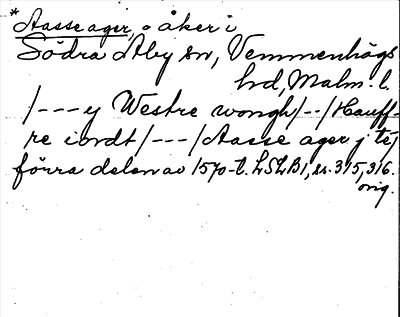 *Aasse ager, åker i
Södra Åby sn, Vemmenhögs
hd, Malm. l.
/---y Westre wongh/--/Hauff-
re iordt/---/Aasse ager j tej
förra delen av 1570-t. LSLB1, ss. 315, 316.
orig.